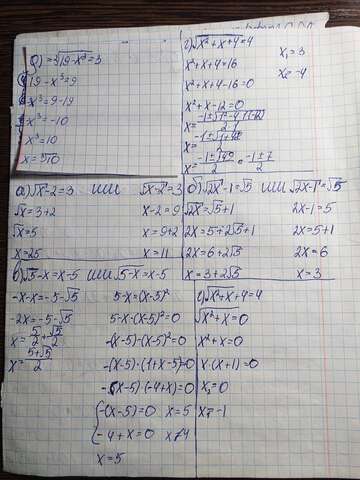 д) = ∛19-x³ = 3
19 - x³ = 9
-x³ = 9 - 19
-x³ = -10
x³ = 10
x = ∛10
г) √x²+x+4 = 4
x²+x+4=16
x²+x+4-16=0
x²+x-12=0
x =
x =
x = -1±√49/2 = -1±7/2
x₁ = 3
x = -4
а) √x - 2 = 3 или √x-2 = 3
√x = 3+2
√x = 5
x = 25
x - 2 = 9
x = 9+2
x = 11
б) √2x - 1 = √5 или √2x-1 = √5
√2x = √5+1
2x = 5+2√5+1
2x = 6+2√5
x = 3+2√5
2x-1 = 5
2x = 5+1
2x = 6
x = 3
в) √5 - x = x - 5 или √5-x = x-5
-x-x = -5-√5
-2x = -5-√5
x = 5/2 + √5/2
x = 5+√5/2
5-x = (x-5)²
5-x-(x-5)² = 0
-(x-5)-(x-5)² = 0
-(x-5)·(1+x-5)=0
-(x-5)·(-4+x)=0
-(x-5)=0 x=5
-4+x=0 x≠4
x = 5
г) √x²+x + 4 = 4
√x²+x = 0
x²+x = 0
x·(x+1) = 0
x₁ = 0
x = -1